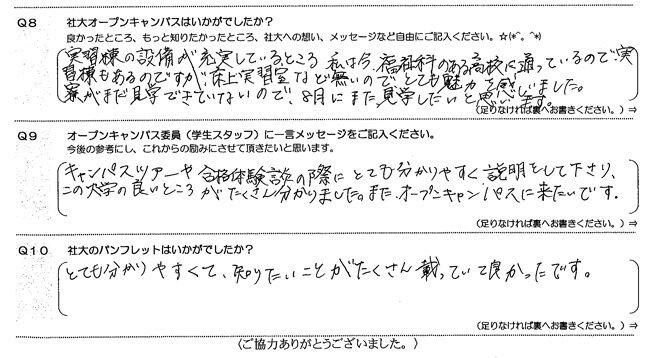 Q8 社大オープンキャンパスはいかがでしたか？
良かったところ、もっと知りたかったところ、社大への想い、メッセージなど自由にご記入ください。☆(*^。^*)
実習棟の設備が充実しているところ 私は今、福祉科のある高校に通っているので、実
習棟もあるのですが、床上実習室など無いので、とても魅力を感じました。
寮がまだ見学できていないので、8月にまた見学したいと思います。
(足りなければ裏へお書きください。)⇒
Q9 オープンキャンパス委員（学生スタッフ）に一言メッセージをご記入ください。
今後の参考にし、これからの励みにさせて頂きたいと思います。
キャンパスツアーや 合格体験談の際にとても分かりやすく説明をして下さり、
この大学の良いところがたくさん分かりました。また、オープンキャンパスに来たいです．
(足りなければ裏へお書きください。)⇒
Q10 社大のパンフレットはいかがでしたか？
とても分かりやすくて、知りたいことがたくさん載っていて良かったです。
(足りなければ裏へお書きください。)⇒
〈ご協力ありがとうございました。〉